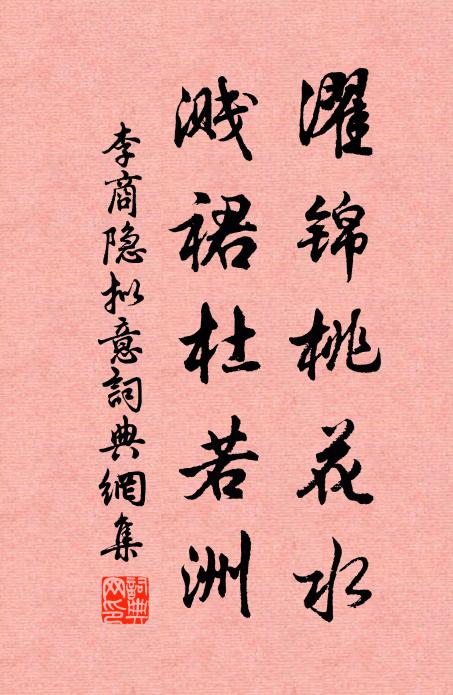 濯锦桃花水
溅裙杜若洲
李商隐拟意詞典網集
詞典网印